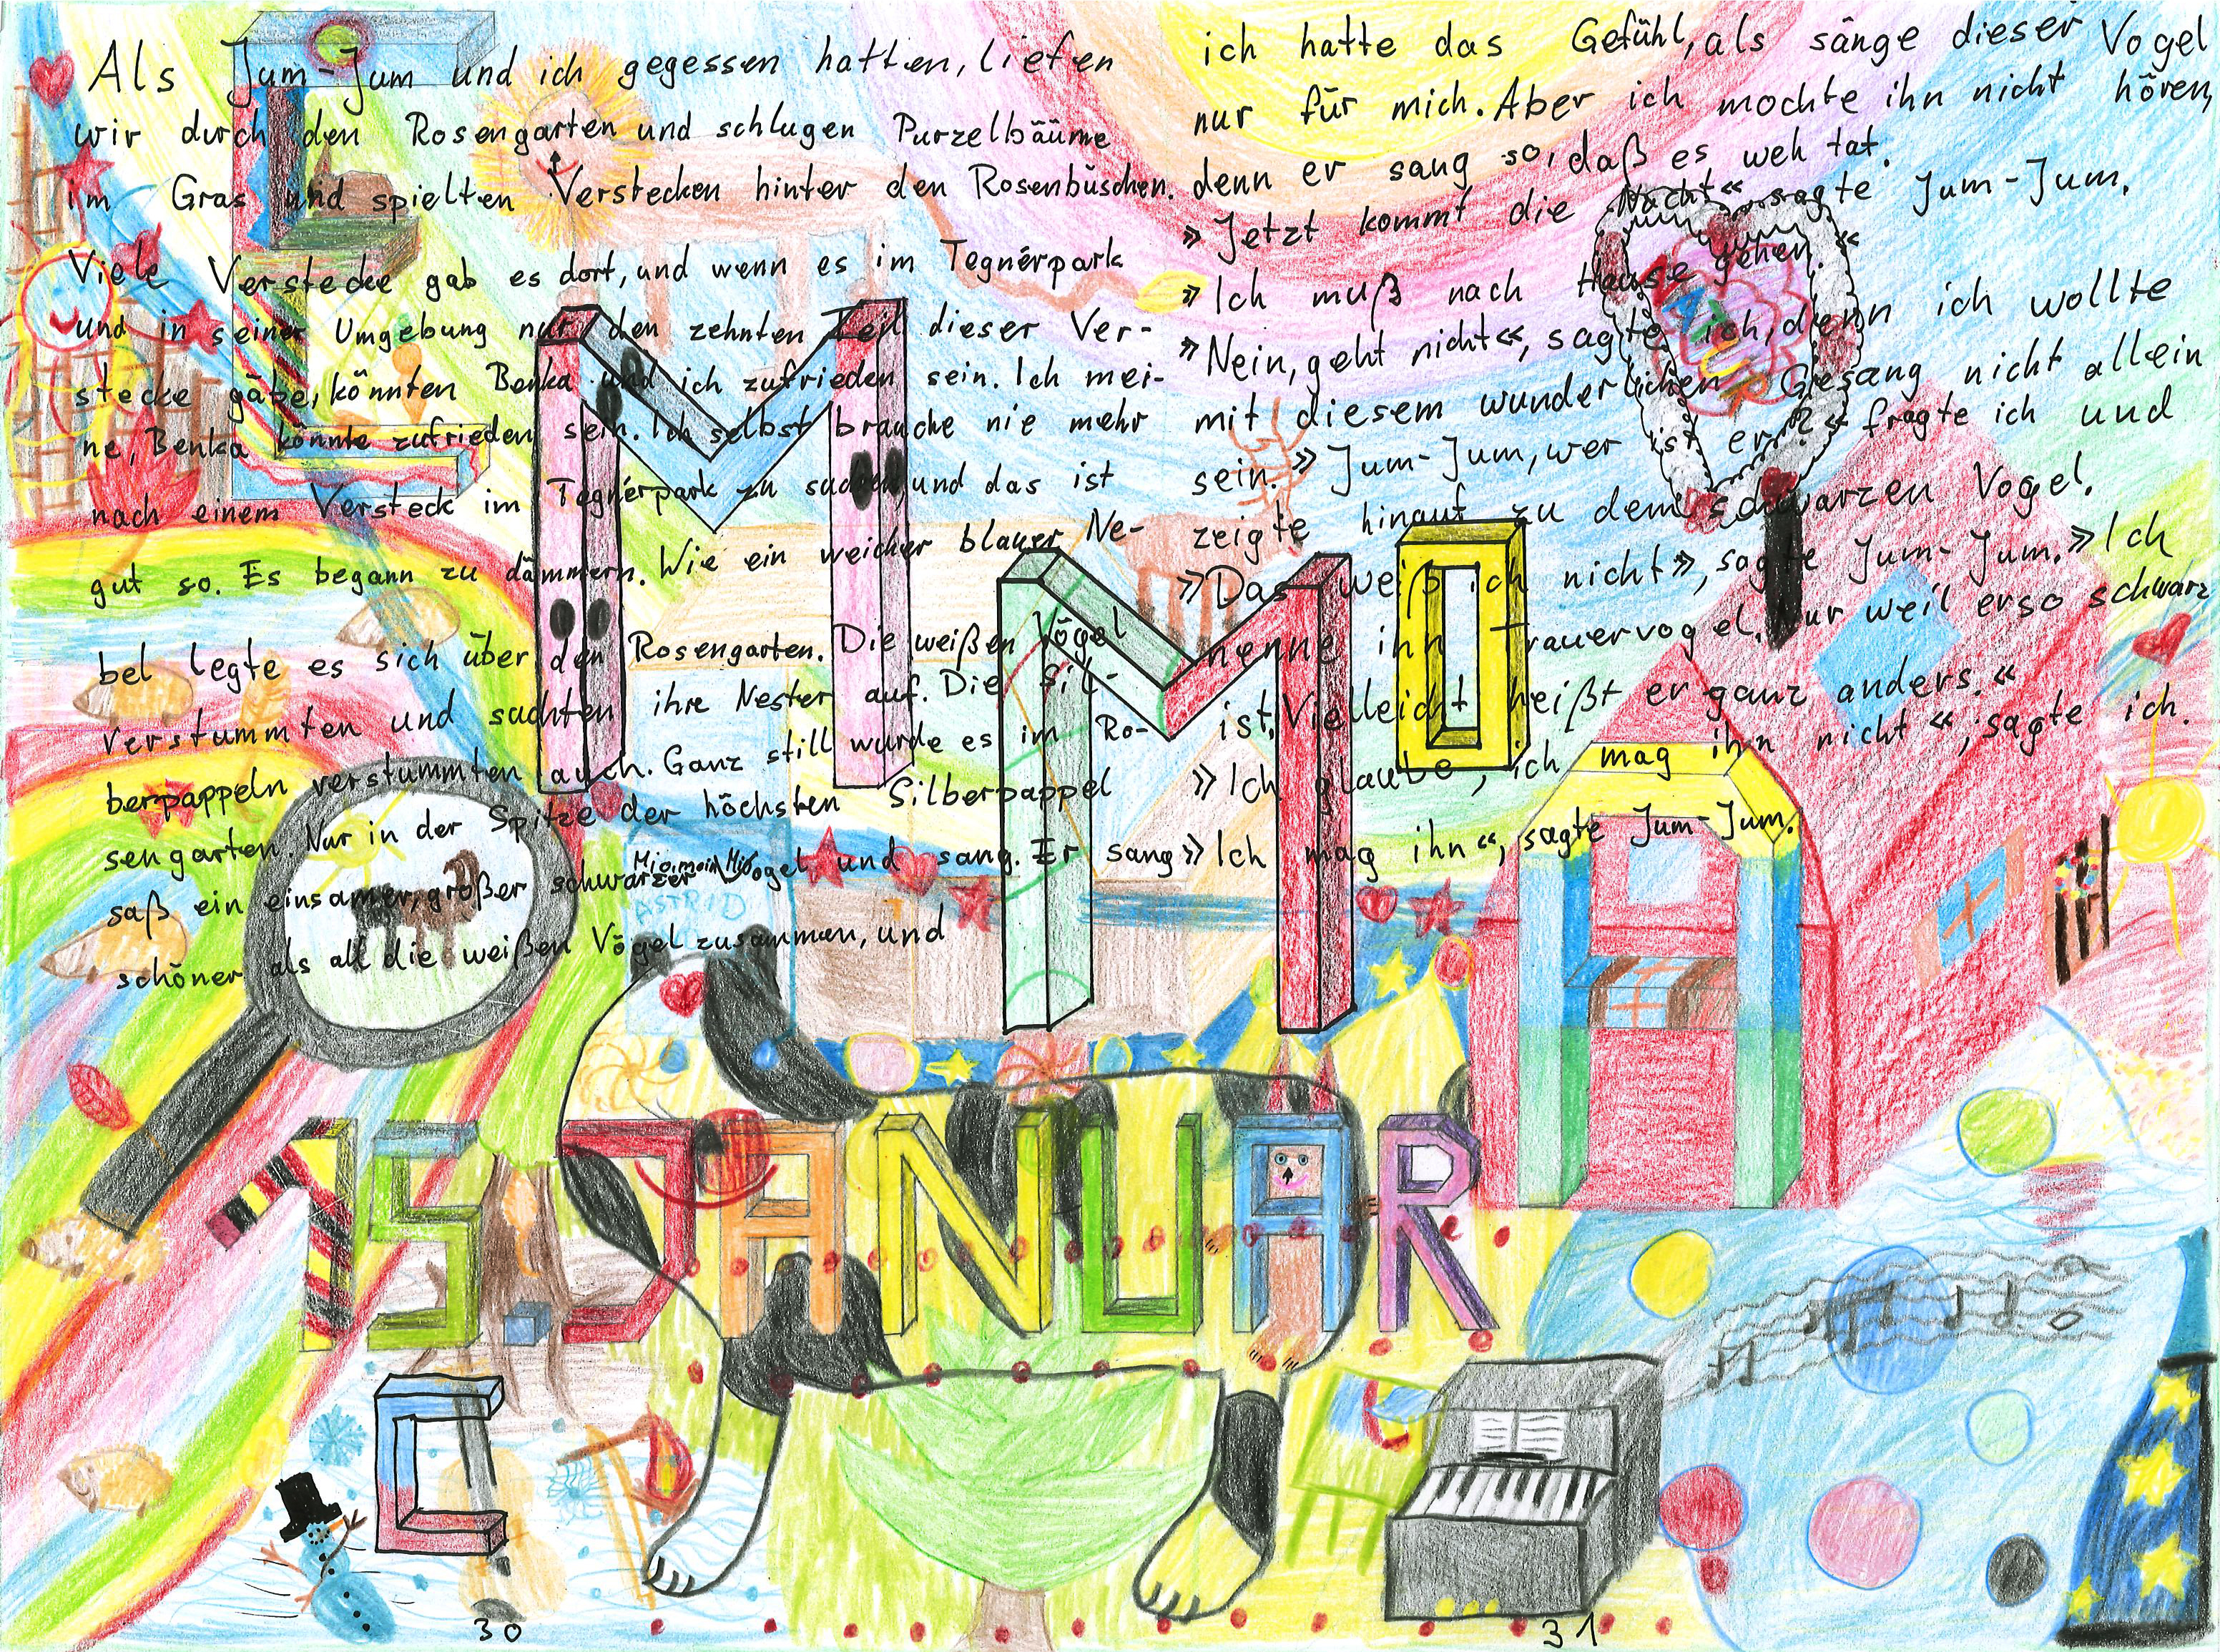 Als Jum-Jum und ich gegessen hatten, liefen
wir durch den Rosengarten und schlugen Purzelbäume
im Gras und spielten Verstecken hinter den Rosenbüschen.
Viele Verstecke gab es dort, und wenn es im Tegnérpark
und in seiner Umgebung nur den zehnten Teil dieser Ver-
stecke gäbe, könnten Benka und ich zufrieden sein. Ich mei-
ne, Benka könnte zufrieden sein. Ich selbst brauche nie mehr
nach einem Versteck im Tegnérpark zu suchen, und das ist
gut so. Es begann zu dämmern. Wie ein weicher blauer Ne-
bel legte es sich über den Rosengarten. Die weißen Vögel
verstummten und suchten ihre Nester auf. Die Sil-
berpappeln verstummten auch. Ganz still wurde es im Ro-
sengarten. Nur in der Spitze der höchsten Silberpappel
saß ein einsamer, großer schwarzer Vogel und sang. Er sang
schöner als all die weißen Vögel zusammen, und
ich hatte das Gefühl, als sänge dieser Vogel
nur für mich. Aber ich mochte ihn nicht hören,
denn er sang so, daß es weh tat.
»Jetzt kommt die Nacht« sagte Jum-Jum.
»Ich muß nach Hause gehen.«
»Nein, geht nicht«, sagte ich, denn ich wollte
mit diesem wunderlichen Gesang nicht allein
sein. »Jum-Jum, wer ist er?« fragte ich und
zeigte hinauf zu dem schwarzen Vogel.
»Das weiß ich nicht», sagte Jum-Jum. »Ich
nenne ihn Trauervogel. Nur weil er so schwarz
ist. Vielleicht heißt er ganz anders.«
»Ich glaube, ich mag ihn nicht«, sagte ich.
»Ich mag ihn«, sagte Jum-Jum.
Mio, mein Mio
ASTRID
E
MMMOA
15. JANUAR
C
30
31